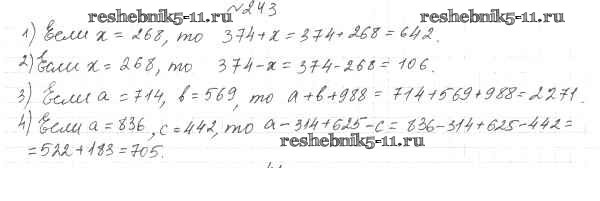 №243
reshebnik5-11.ru
1) Если x = 268, то 374 + x = 374 + 268 = 642.
2) Если x = 268, то 374 - x = 374 - 268 = 106.
3) Если a = 714, b = 569, то a + b + 988 = 714 + 569 + 988 = 2271.
4) Если a = 836, c = 442, то a - 314 + 625 - c = 836 - 314 + 625 - 442 =
= 522 + 183 = 705.
reshebnik5-11.ru